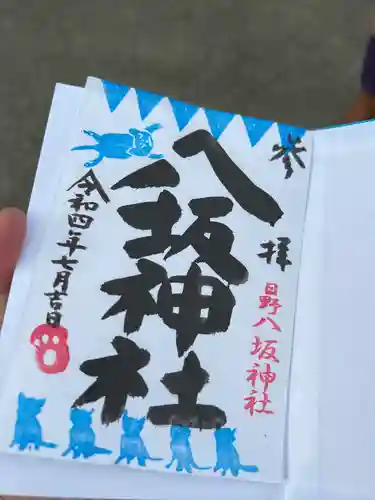 参拝
日野八坂神社
八坂神社
令和四年七月吉日